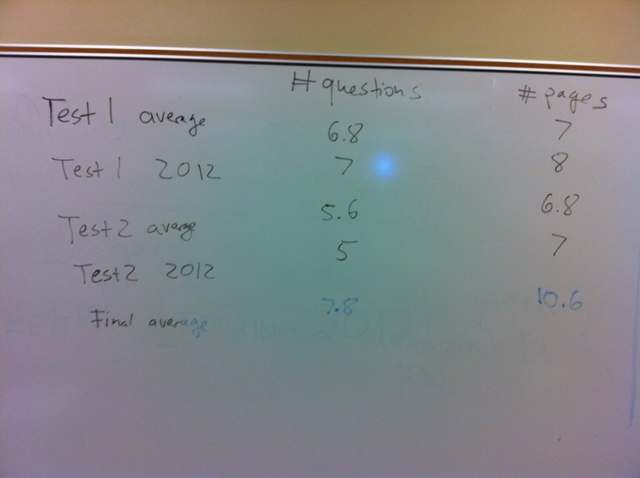 # questions # pages
Test 1 average 6.8 7
Test 1 2012 7 8
Test 2 average 5.6 6.8
Test 2 2012 5 7
Final average 7.8 10.6